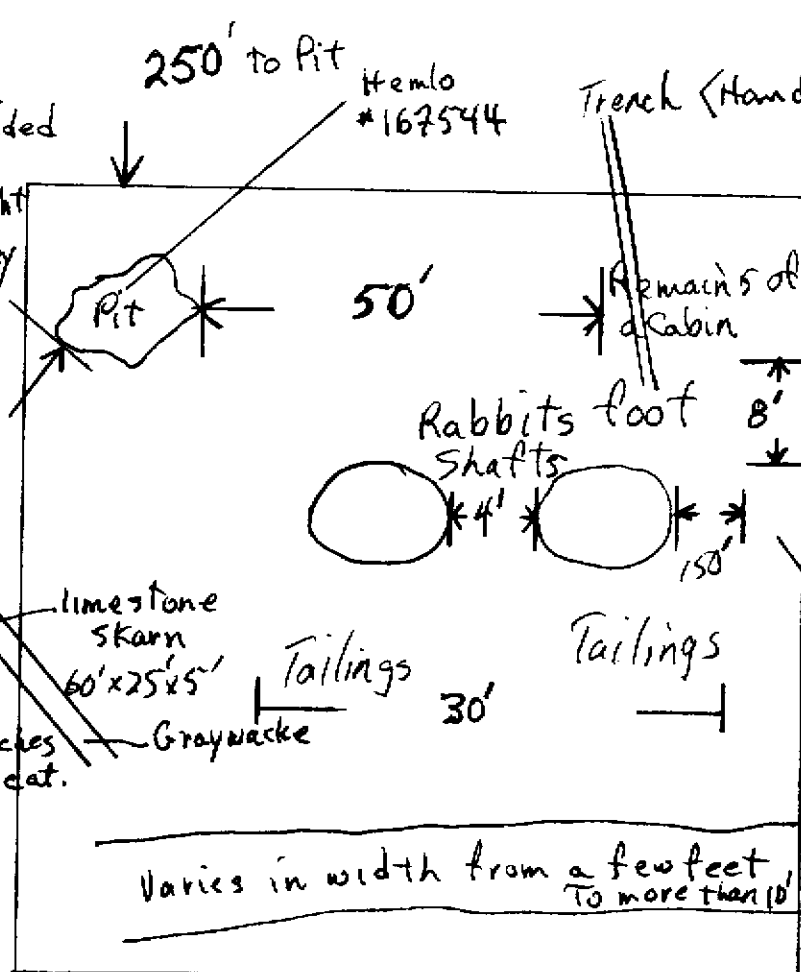 250' to Pit
Hemlo
#167544
Trench (Hand
ded
ht
y
Pit
50'
Remains of
a Cabin
Rabbits foot
Shafts
8'
4'
150'
limestone
skarn
60'x25'x5'
Tailings
Tailings
30'
Graywacke
ches
eat.
Varies in width from a few feet
To more than 10'